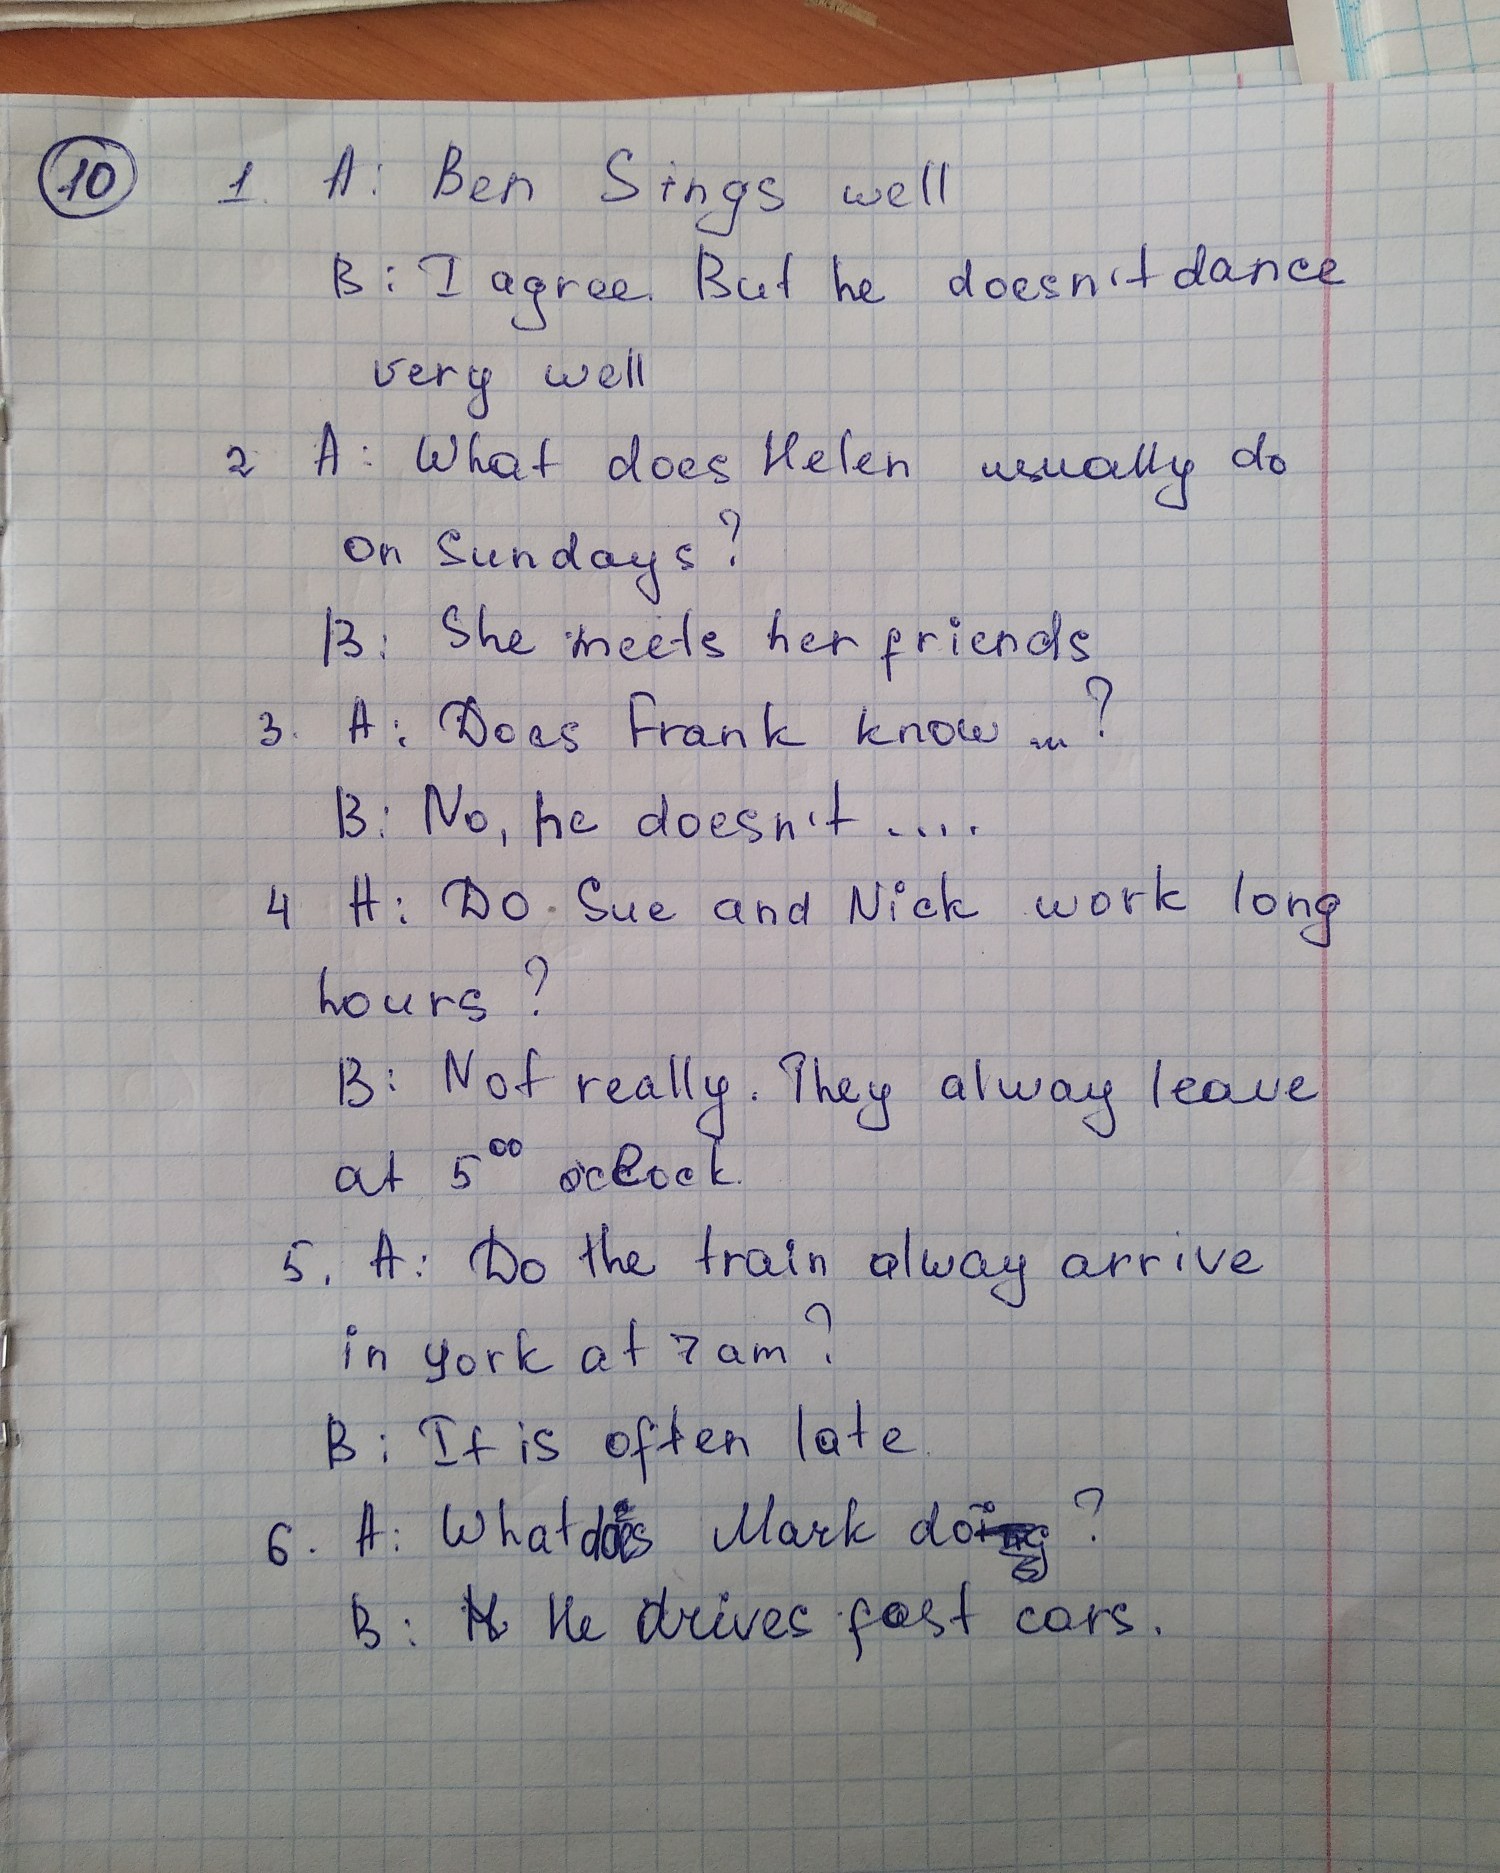 10 1. A: Ben Sings well
B: I agree. But he doesn't dance
very well
2 A: What does Helen usually do
on Sundays?
B: She meets her friends
3. A: Does Frank know ...?
B: No, he doesn't ....
4 A: Do Sue and Nick work long
hours?
B: Not really. They alway leave
at 5⁰⁰ o'clock.
5. A: Do the train alway arrive
in york at 7 am?
B: It is often late.
6. A: What does Mark do?
B: He drives fast cars.